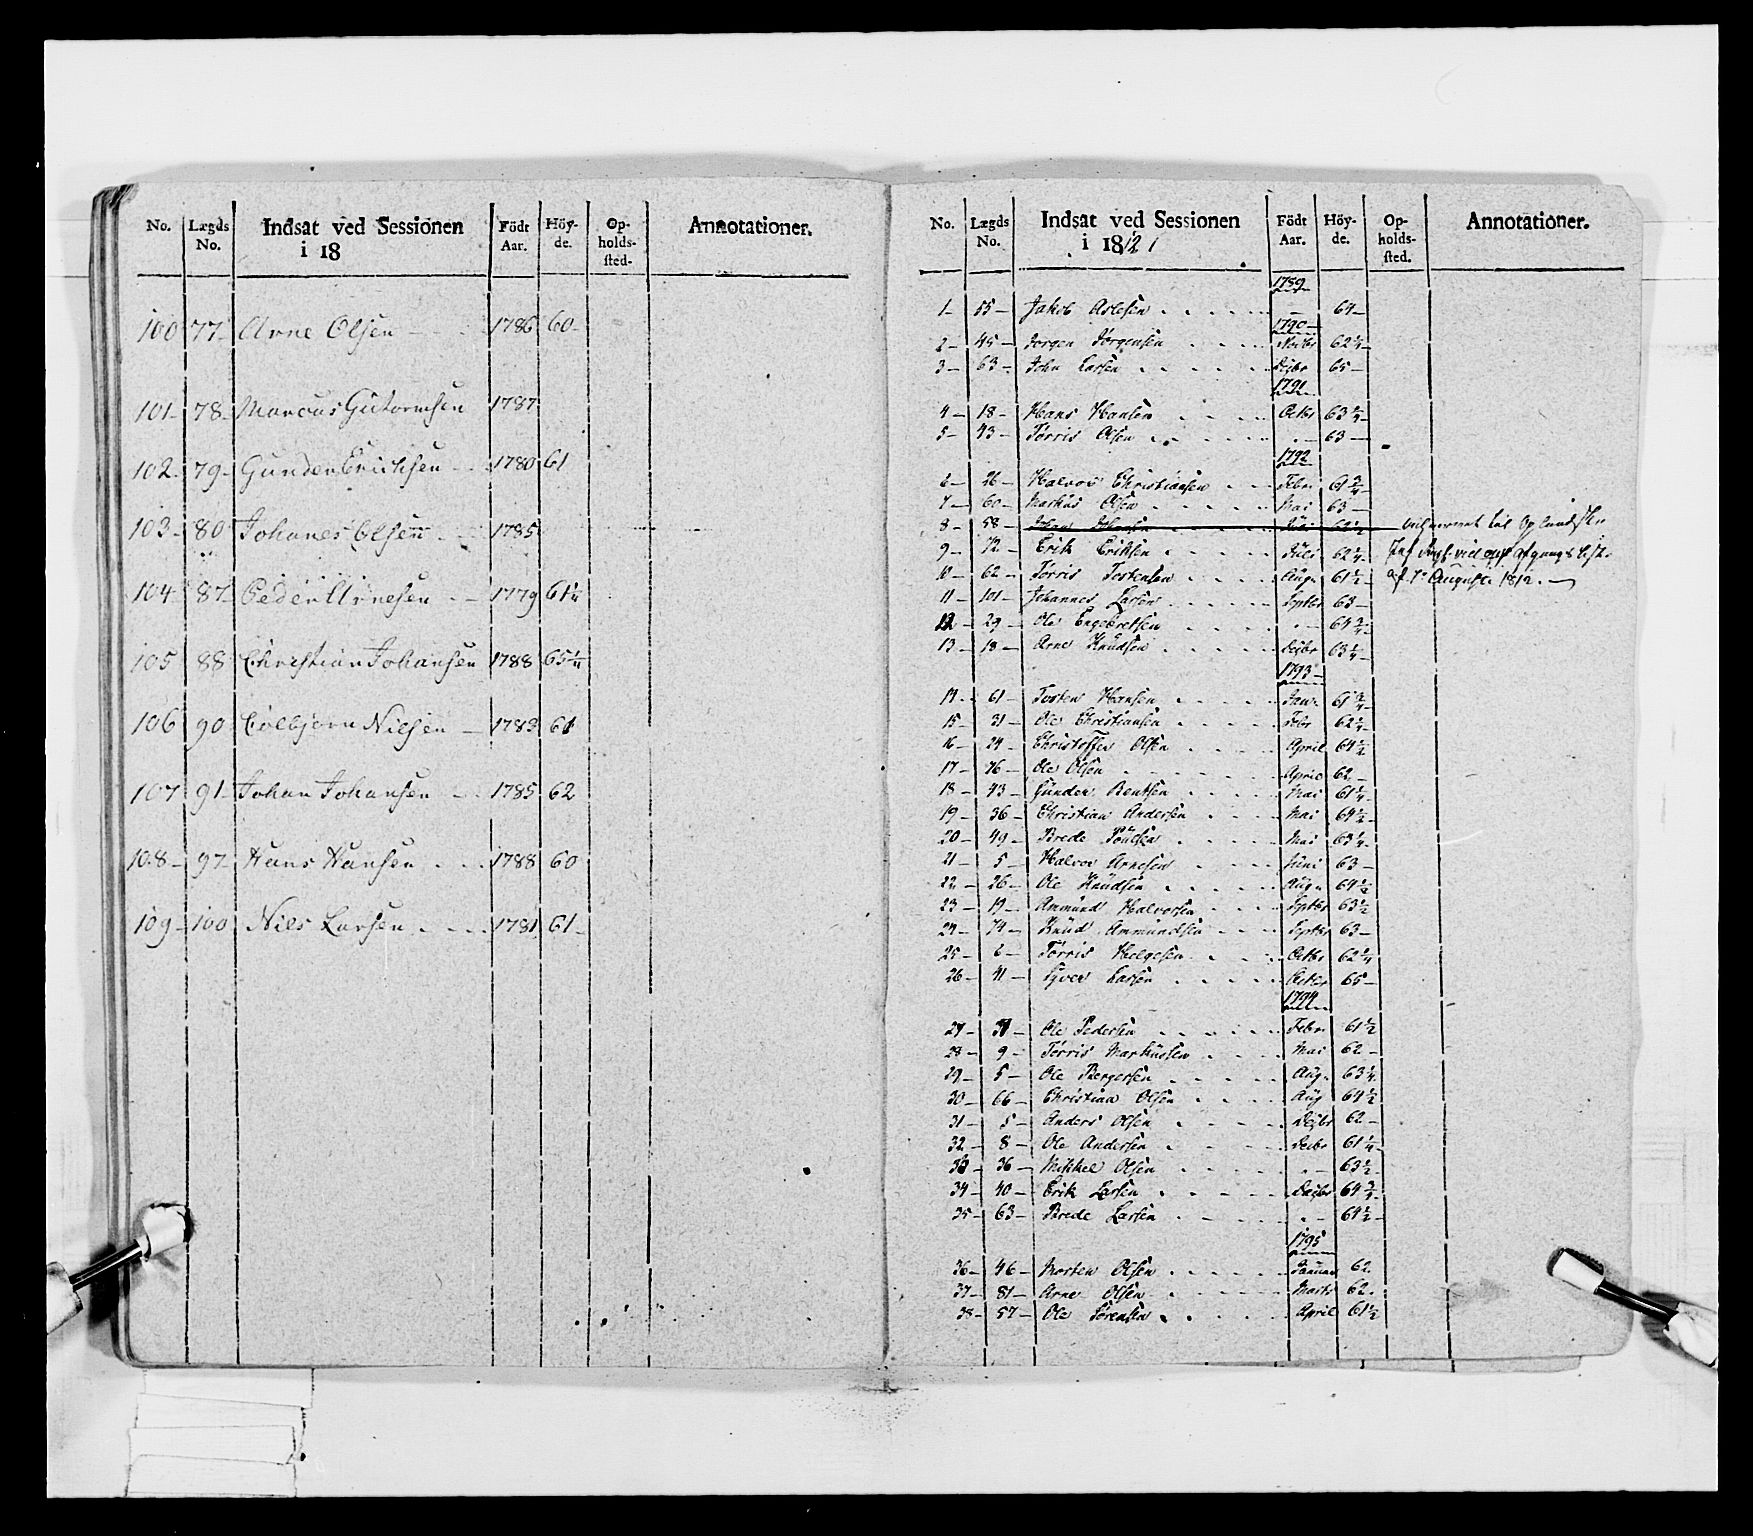 No. Lægds No. Indsat ved Sessionen i 18 Födt Aar. Höy-de. Op-holds-sted. Annotationer.
100 77 Arne Olsen 1786 60
101 78 Marcus Gutormsen 1787
102 79 Gunder Erichsen 1780 61
103 80 Johanes Olsen 1785
104 87 Peder Arnesen 1779 61 1/4
105 88 Christian Johansen 1788 65 1/4
106 90 Colbjørn Nilsen 1783 61
107 91 Johan Johansen 1785 62
108 97 Hans Hansen 1788 60
109 100 Nils Larsen 1781 61
No. Lægds No. Indsat ved Sessionen i 1812 Födt Aar. Höy-de. Op-holds-sted. Annotationer.
1789
1 55 Jakob Aslesen 64
1790
2 45 Jørgen Jørgensen Novbr 62 1/4
3 63 John Larsen Dejbr 65
1791
4 18 Hans Hansen Octbr 63 1/4
5 43 Tørris Olsen 63
1792
6 26 Halvor Christiansen Febr 61 3/4
7 60 Markus Olsen Mai 63
8 58 62 1/2 til Oplandske
9 72 Erik Eriksen Juli 62 1/4 Inf. Afgangs List.
10 62 Tørris Tostensen Aug. 61 1/2 af 7e August 1812.
11 101 Johannes Larsen Septbr 63
12 29 Ole Engebretsen 64 3/4
13 18 Arne Knudsen Dejbr 63 1/4
1793
14 61 Tosten Hansen Jan. 61 3/4
15 31 Ole Christiansen Febr 62 1/4
16 24 Christoffer Olsen April 64 1/2
17 76 Ole Olsen April 62
18 43 Gunder Bentsen Mai 61 1/4
19 36 Christian Andersen Mai 64 1/2
20 49 Brede Poulsen Mai 63 1/4
21 5 Halvor Arnesen Juni 63
22 26 Ole Knudsen Aug. 64 1/2
23 19 Ammund Halvorsen Septbr 63 1/2
24 74 Knud Ammundsen Septbr 63
25 6 Tørris Helgesen Octbr 62 1/4
26 41 Syver Larsen Octbr 65
1794
27 31 Ole Pedersen Febr 61 1/2
28 9 Tørris Markussen Mai 62
29 5 Ole Bergersen Aug. 63 1/4
30 66 Christian Olsen Aug 64 1/2
31 5 Anders Olsen Dejbr 62
32 8 Ole Andersen Dejbr 61 1/4
33 36 Mikkel Olsen 63 1/2
34 40 Erik Larsen Dejbr 64 3/4
35 63 Brede Larsen 64 1/2
1795
36 46 Morten Olsen Januar 62
37 81 Arne Olsen Marts 62
38 57 Ole Sørensen April 61 1/2